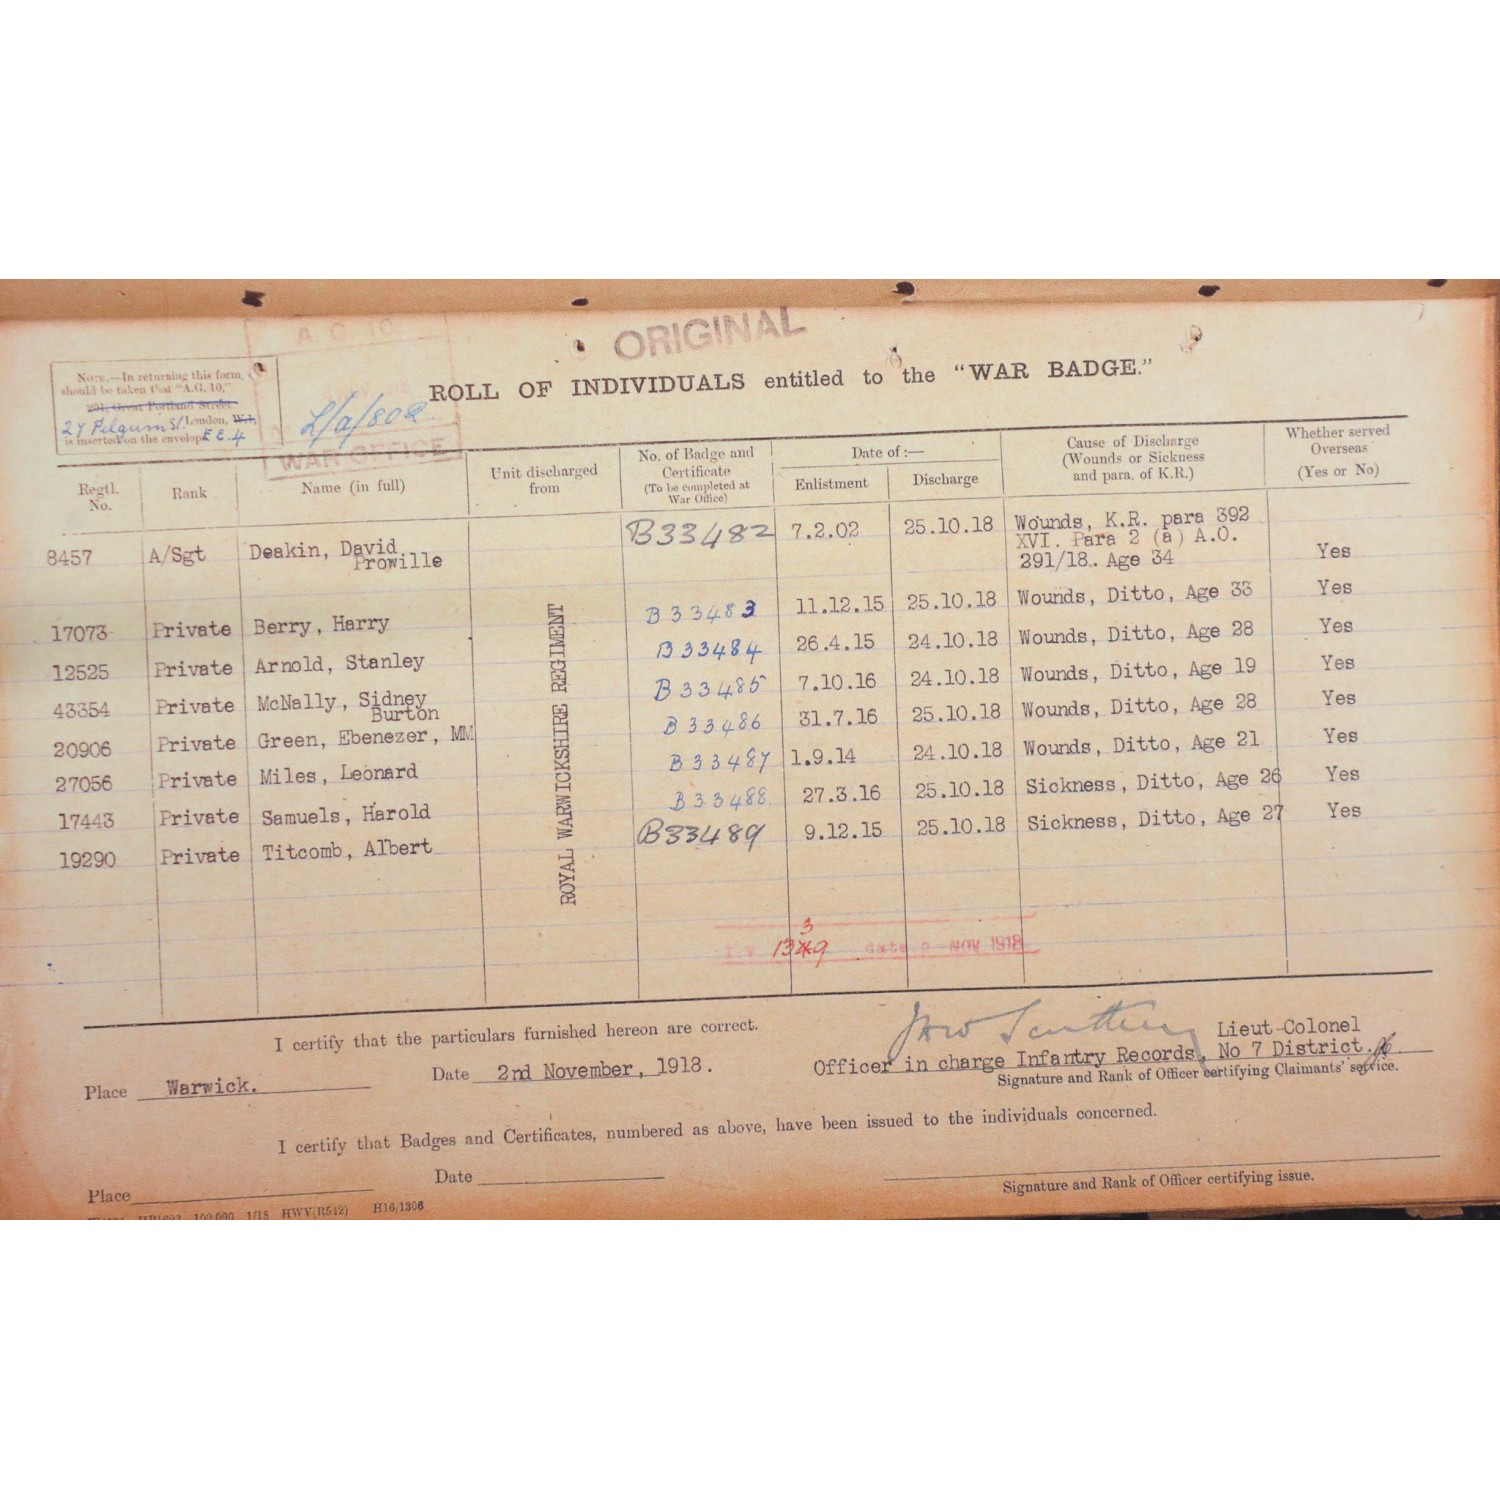 A. G. 10.
ORIGINAL
NOTE.—In returning this form,
should be taken that "A.G. 10,"
291, Great Portland Street
27 Pilgrim St. London, W.1,
is inserted on the envelope E C 4
L/a/802
WAR OFFICE
ROLL OF INDIVIDUALS entitled to the "WAR BADGE."
Regtl. No. | Rank | Name (in full) | Unit discharged from | No. of Badge and Certificate (To be completed at War Office) | Date of :— Enlistment | Discharge | Cause of Discharge (Wounds or Sickness and para. of K.R.) | Whether served Overseas (Yes or No)
8457 A/Sgt Deakin, David Prowille B33482 7.2.02 25.10.18 Wounds, K.R. para 392 XVI. Para 2 (a) A.O. 291/18. Age 34 Yes
17073 Private Berry, Harry B33483 11.12.15 25.10.18 Wounds, Ditto, Age 33 Yes
12525 Private Arnold, Stanley B33484 26.4.15 24.10.18 Wounds, Ditto, Age 28 Yes
43354 Private McNally, Sidney Burton B33485 7.10.16 24.10.18 Wounds, Ditto, Age 19 Yes
20906 Private Green, Ebenezer, MM B33486 31.7.16 25.10.18 Wounds, Ditto, Age 28 Yes
27056 Private Miles, Leonard B33487 1.9.14 24.10.18 Wounds, Ditto, Age 21 Yes
17443 Private Samuels, Harold B33488 27.3.16 25.10.18 Sickness, Ditto, Age 26 Yes
19290 Private Titcomb, Albert B33489 9.12.15 25.10.18 Sickness, Ditto, Age 27 Yes
ROYAL WARWICKSHIRE REGIMENT
3
1349 date NOV 1918
I certify that the particulars furnished hereon are correct.
Lieut-Colonel
Place Warwick. Date 2nd November, 1918. Officer in charge Infantry Records, No 7 District.
Signature and Rank of Officer certifying Claimants' service.
I certify that Badges and Certificates, numbered as above, have been issued to the individuals concerned.
Place Date
Signature and Rank of Officer certifying issue.
1/18 HWV(R512) H16/1306